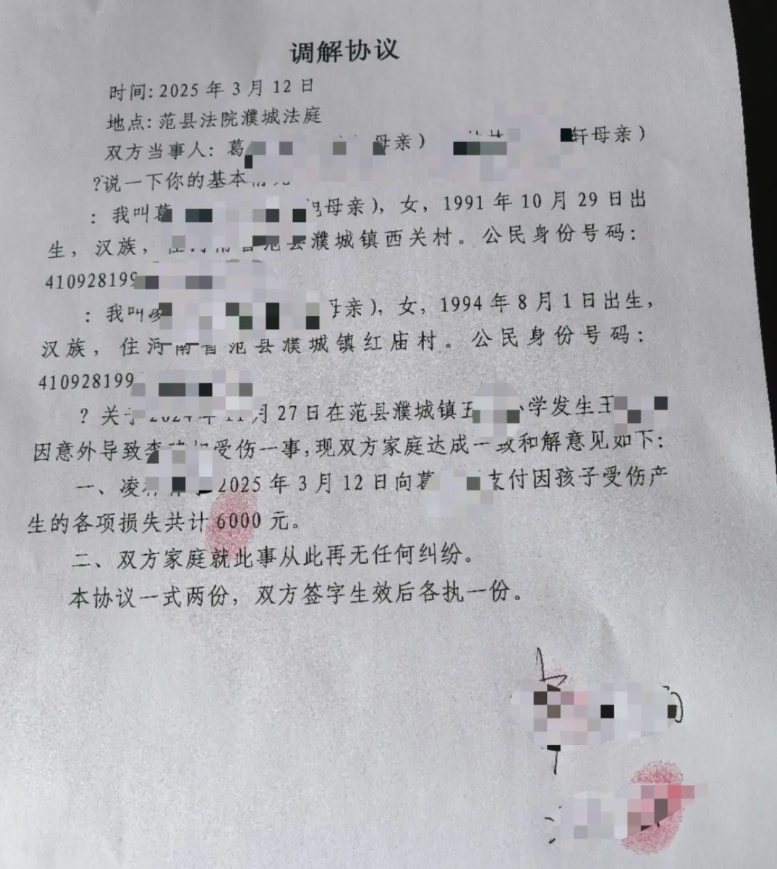 调解协议
时间: 2025 年 3 月 12 日
地点: 范县法院濮城法庭
双方当事人: 葛 母亲) 轩母亲)
?说一下你的基本
: 我叫 母亲), 女, 1991 年 10 月 29 日出
生, 汉族, 范县濮城镇西关村。公民身份号码:
410928199
: 我叫 母亲), 女, 1994 年 8 月 1 日出生,
汉族, 住河南省范县濮城镇红庙村。公民身份号码:
410928199
? 关于 月 27 日在范县濮城镇王 小学发生王
因意外导致 受伤一事, 现双方家庭达成一致和解意见如下:
一、凌 2025 年 3 月 12 日向葛 支付因孩子受伤产
生的各项损失共计 6000 元。
二、双方家庭就此事从此再无任何纠纷。
本协议一式两份, 双方签字生效后各执一份。